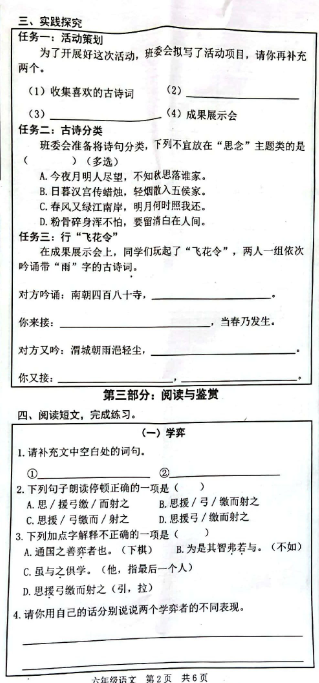 三、实践探究
任务一：活动策划
为了开展好这次活动，班委会拟写了活动项目，请你再补充
两个。
（1）收集喜欢的古诗词 （2）
（3） （4）成果展示会
任务二：古诗分类
班委会准备将诗句分类，下列不宜放在“思念”主题类的是
（ ）（多选）
A. 今夜月明人尽望，不知秋思落谁家。
B. 日暮汉宫传蜡烛，轻烟散入五侯家。
C. 春风又绿江南岸，明月何时照我还。
D. 粉骨碎身浑不怕，要留清白在人间。
任务三：行“飞花令”
在成果展示会上，同学们玩起了“飞花令”，两人一组依次
吟诵带“雨”字的古诗词。
对方吟诵：南朝四百八十寺， 。
你来接： ，当春乃发生。
对方又吟：渭城朝雨浥轻尘， 。
你又接： ， 。
第三部分：阅读与鉴赏
四、阅读短文，完成练习。
（一）学弈
1. 请补充文中空白处的词句。
① ②
2. 下列句子朗读停顿正确的一项是（ ）
A. 思 / 援弓缴 / 而射之 B. 思援 / 弓 / 缴而射之
C. 思援 / 弓缴而 / 射之 D. 思援弓 / 缴而射之
3. 下列加点字解释不正确的一项是（ ）
A. 通国之善弈者也。（下棋） B. 为是其智弗若与。（不如）
C. 虽与之俱学。（他，指最后一个人）
D. 思援弓缴而射之（引，拉）
4. 请你用自己的话分别说说两个学弈者的不同表现。
六年级语文 第2页 共6页